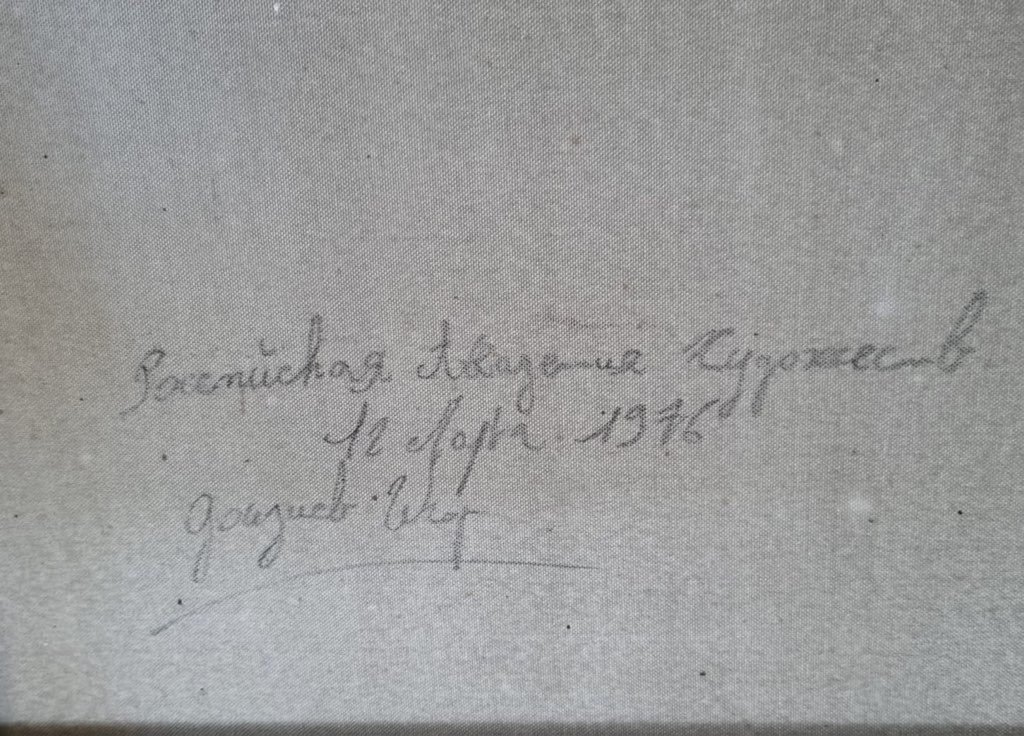 Российская Академия Художеств
12 Марта 1976
Игор